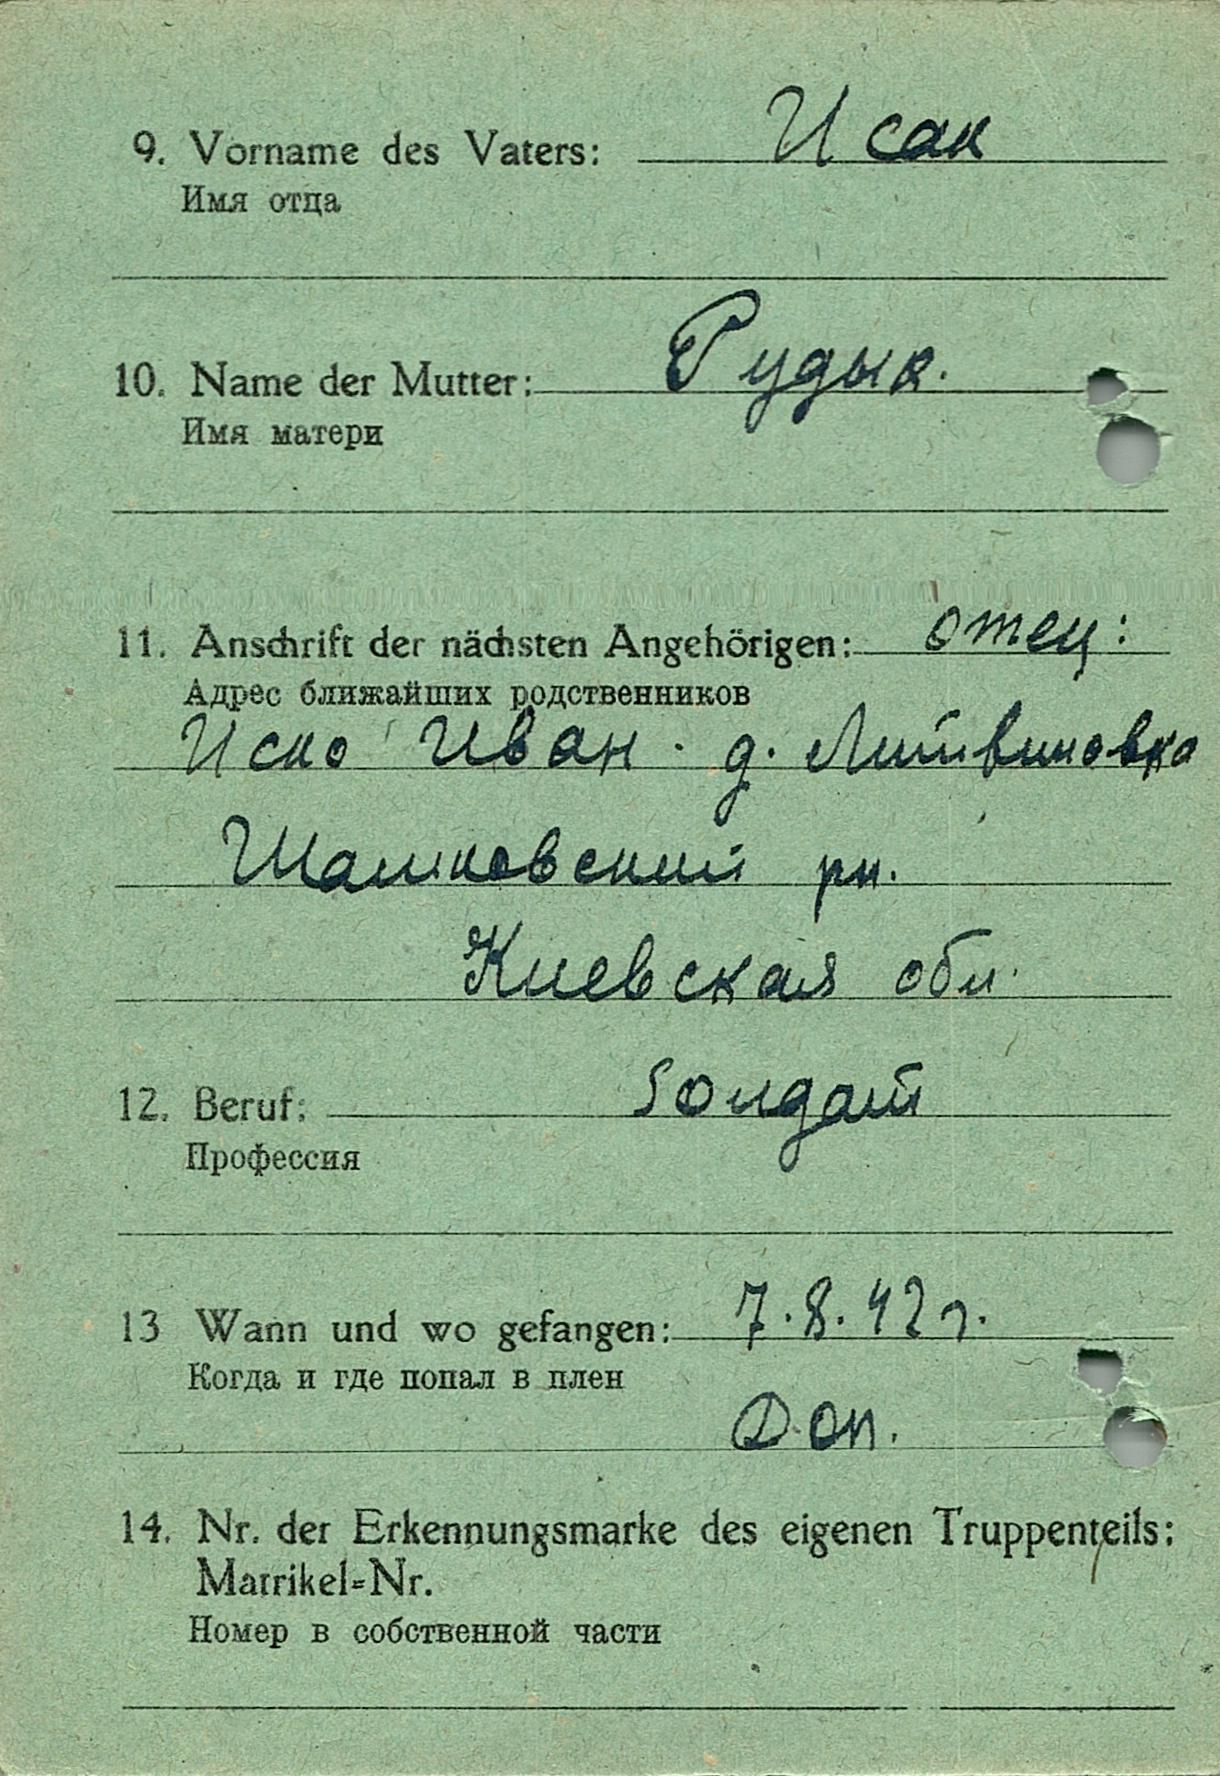 9. Vorname des Vaters: Исак
Имя отца
10. Name der Mutter: Рудык.
Имя матери
11. Anschrift der nächsten Angehörigen: отец:
Адрес ближайших родственников
Иван д. Литвиновка
рн.
Киевская обл.
12. Beruf: Sолдат
Профессия
13 Wann und wo gefangen: 7.8.42 г.
Когда и где попал в плен
Дон.
14. Nr. der Erkennungsmarke des eigenen Truppenteils:
Matrikel=Nr.
Номер в собственной части